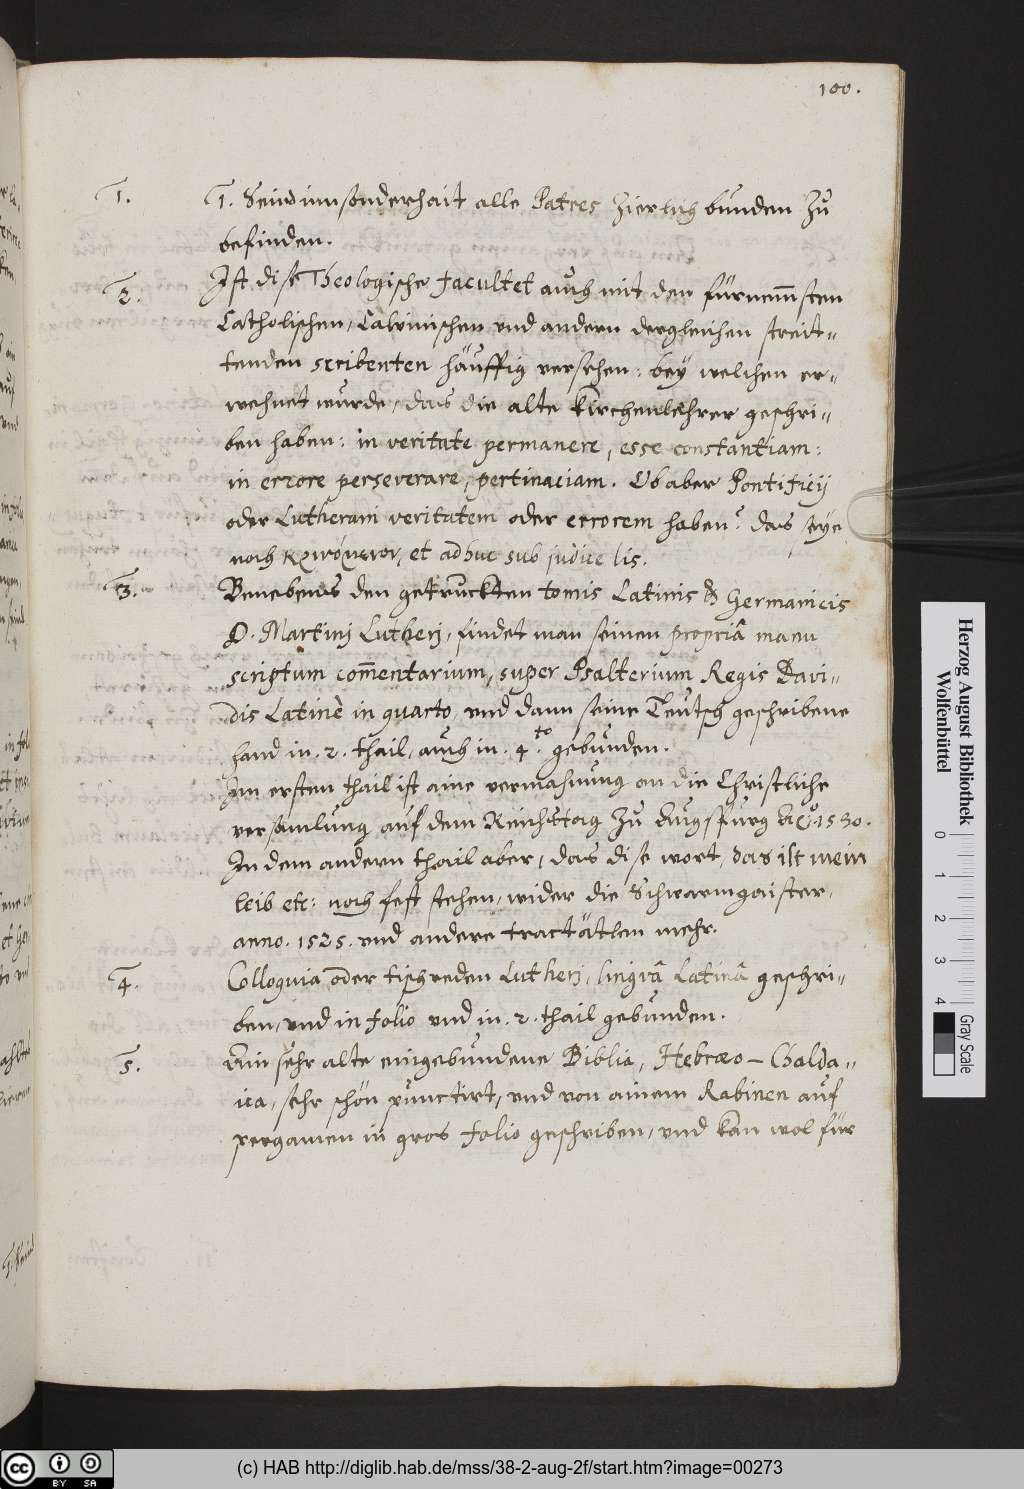 100.
1. 1. Seind innsonderhait alle Patres Zierlich bunden Zu
befinden.
2. Ist dise Theologische facultet auch mit den fürnemsten
Catholischen, Calvinischen und andern dergleichen streit-
tenden scribenten häuffig versehen: bey welchen er-
wehnet wurde, das die alte Kirchenlehrer geschri-
ben haben: in veritate permanere, esse constantiam:
in errore perseverare, pertinaciam. Ob aber Pontificij
oder Lutherani veritatem oder errorem haben? das seye
noch et adhuc sub judice lis.
3. Benebens den getruckten tomis Latinis & Germanicis
D. Martinj Lutherj, findet man seinen propriâ manu
scriptum com̄entarium, super Psalterium Regis Davi-
dis Latinè in quarto, und dann seine Teutsch geschribene
hand in. 2. thail, auch in. 4.to gebunden.
Im ersten thail ist aine vermahnung an die Christliche
versamlung auf dem Reichstag Zu Augspurg 1530.
In dem andern thail aber, das dise wort, das ist mein
leib etc: noch fest stehen, wider die Schwarmgaister,
anno. 1525. und andere tractätlen mehr.
4. Colloquia oder tischreden Lutherj, linguâ Latinâ geschri-
ben, und in folio und in. 2. thail gebunden.
5. Ain sehr alte eingebundene Biblia, Hebræo-Chalda-
ica, sehr schön punctirt, und von ainem Rabinen auf
pergamen in gros folio geschriben, und kan wol für
Herzog August Bibliothek
Wolfenbüttel
0 1 2 3 4
Gray Scale
cc BY SA
(c) HAB http://diglib.hab.de/mss/38-2-aug-2f/start.htm?image=00273